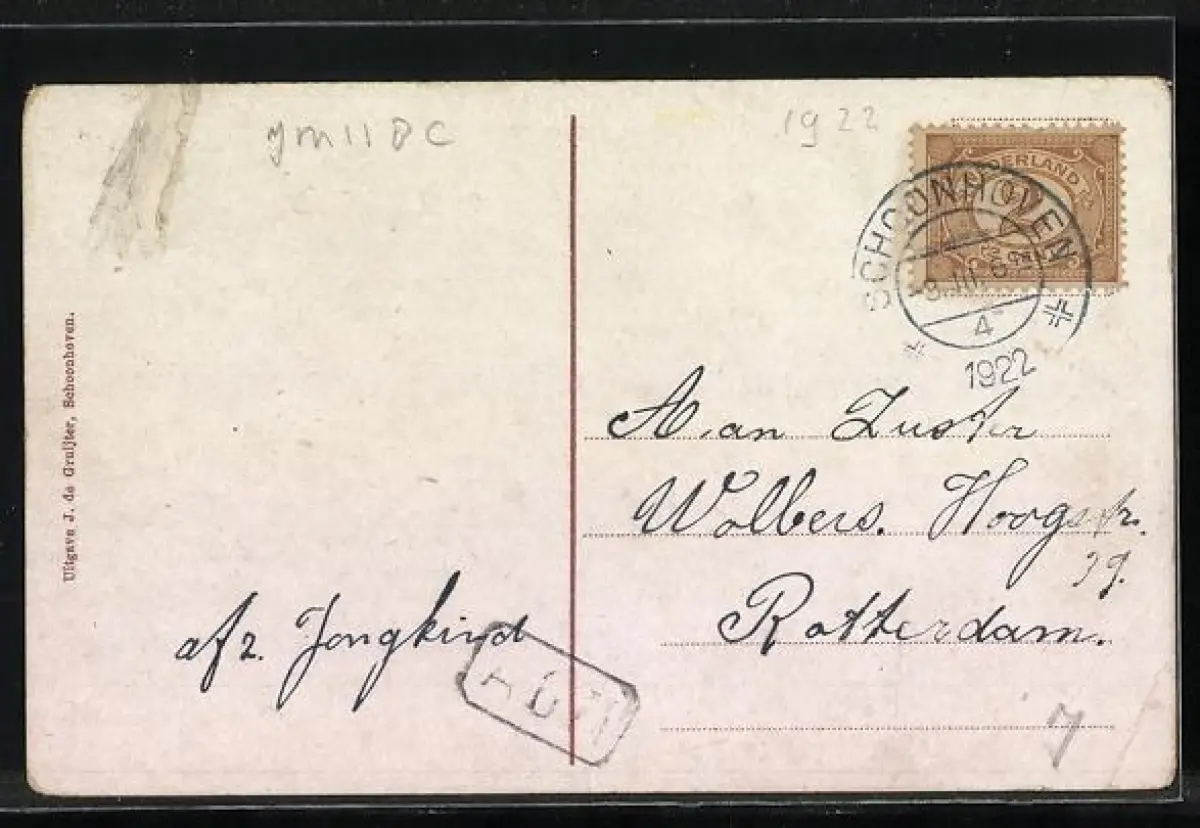 ym11DC
1922
NEDERLAND
SCHOONHOVEN
4
1922
Uitgave J. de Gruijter, Schoonhoven.
Aan Zuster
Wolbers. Hoogstr.
39.
Rotterdam.
afz. Jongkind
7